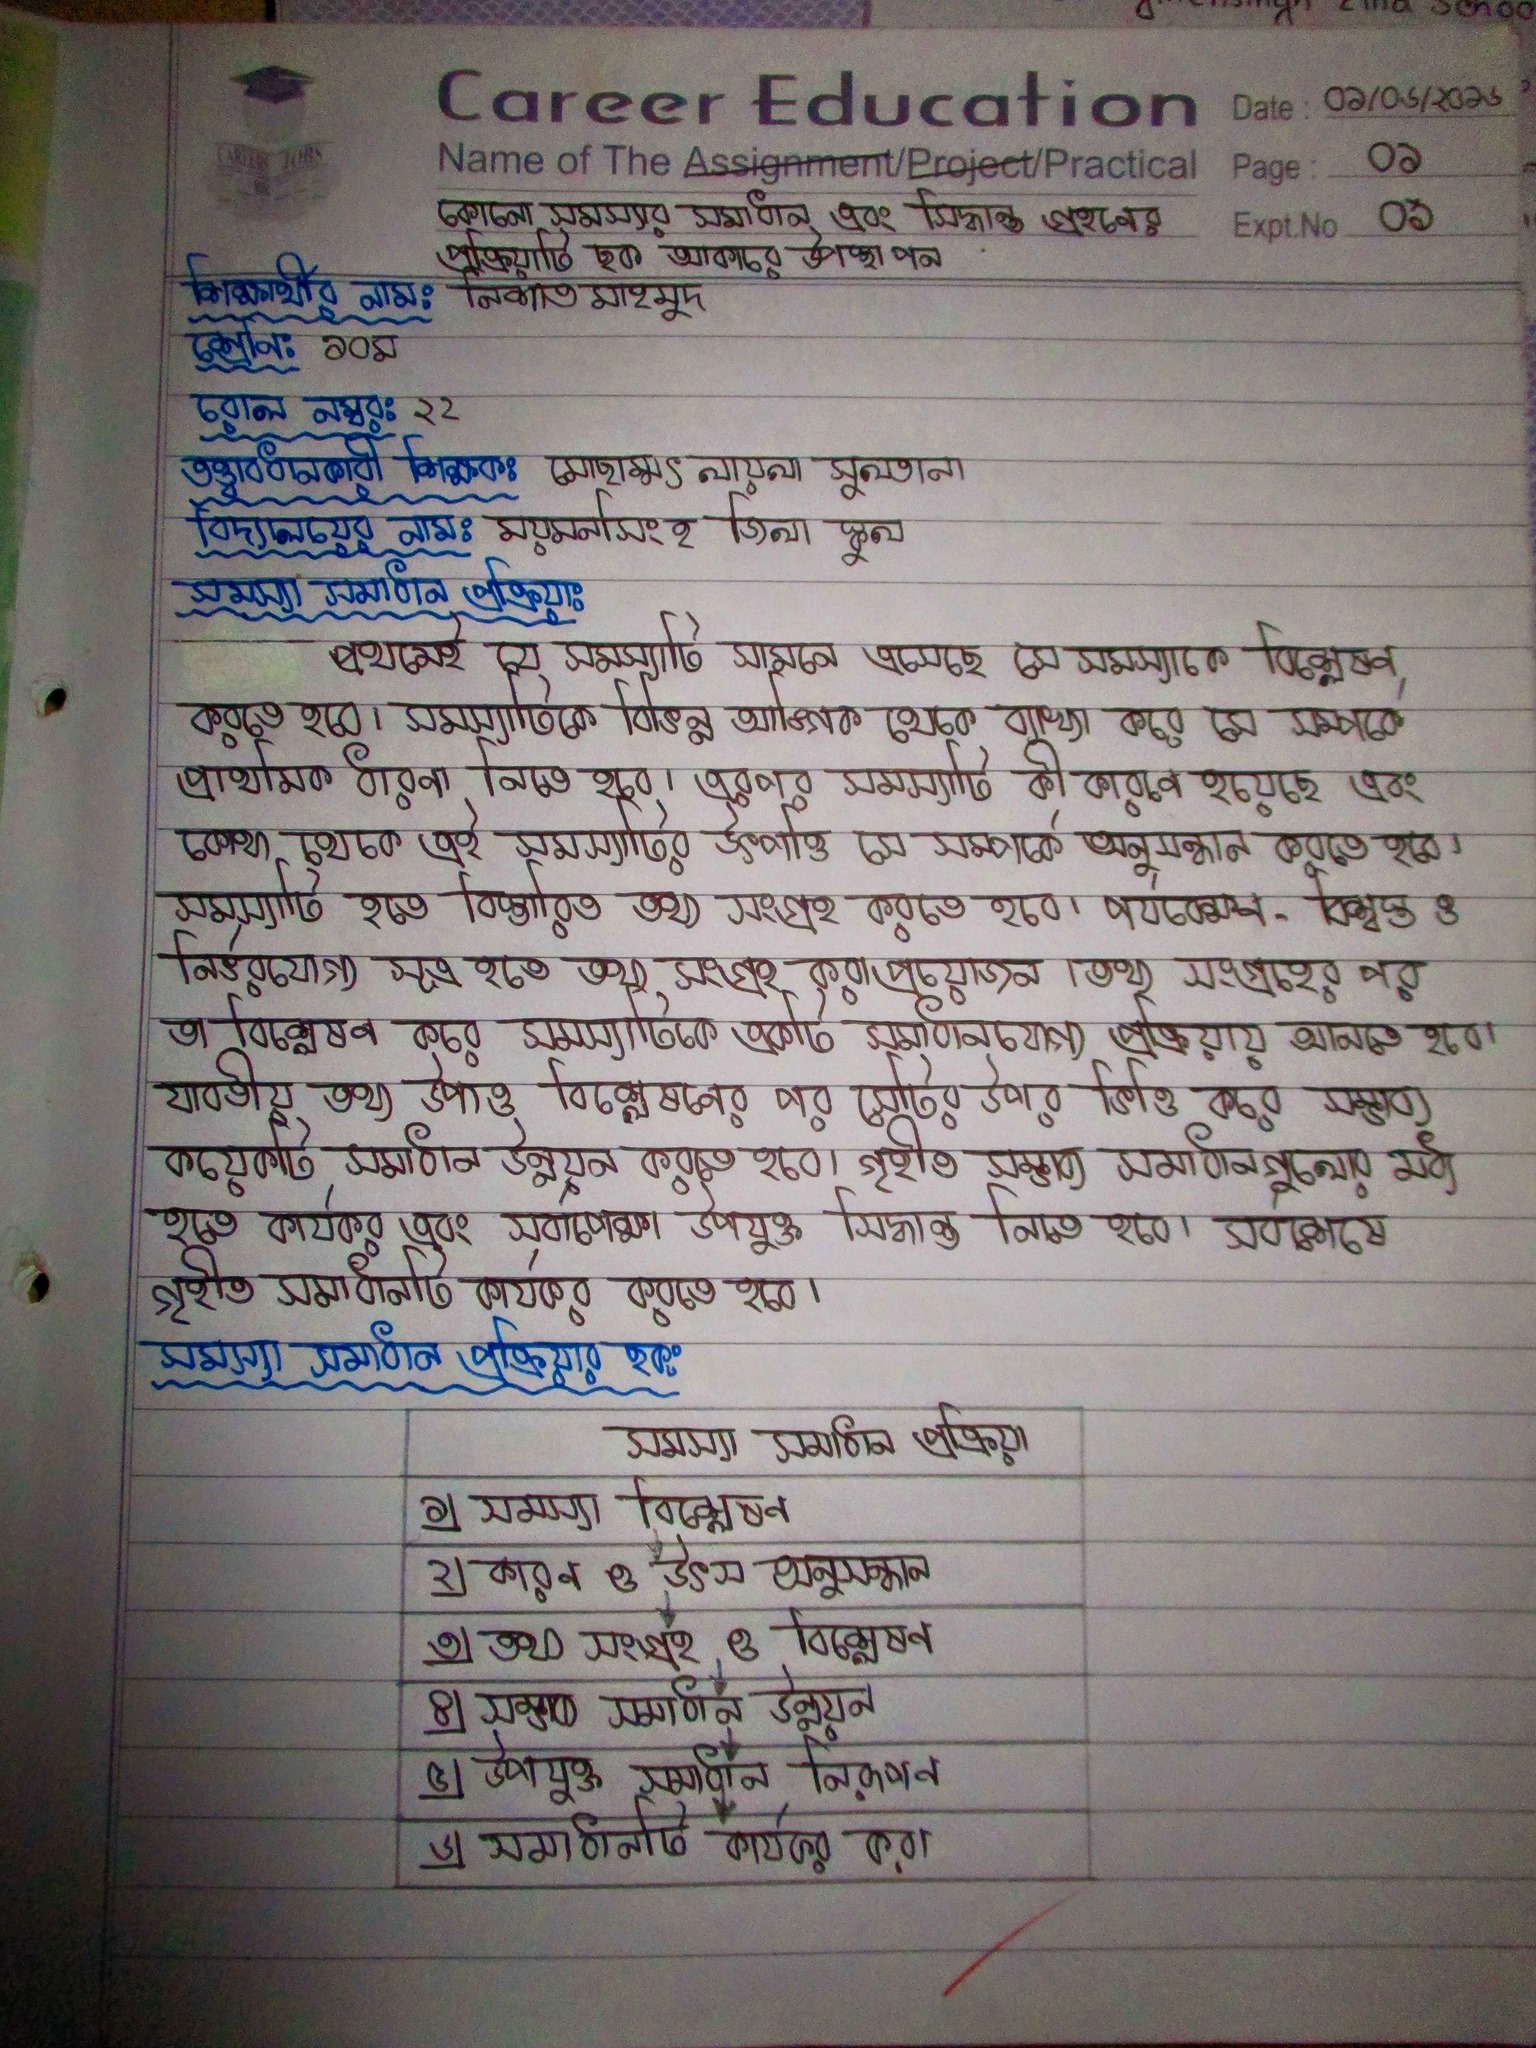 Career Education
Date : ০১/০৬/২০২৬
Name of The Assignment/Project/Practical
Page : ০১
কোনো সমস্যার সমাধান এবং সিদ্ধান্ত গ্রহনের
Expt.No ০১
প্রক্রিয়াটি ছক আকারে উপস্থাপন
শিক্ষার্থীর নামঃ নিশাত মাহমুদ
শ্রেনিঃ ১০ম
রোল নম্বরঃ ২২
তত্ত্বাবধানকারী শিক্ষকঃ মোছাম্মৎ লায়লা সুলতানা
বিদ্যালয়ের নামঃ ময়মনসিংহ জিলা স্কুল
সমস্যা সমাধান প্রক্রিয়াঃ
প্রথমেই যে সমস্যাটি সামনে এসেছে সে সমস্যাকে বিশ্লেষণ
করতে হবে। সমস্যাটিকে বিভিন্ন আঙ্গিক থেকে ব্যাখ্যা করে সে সম্পর্কে
প্রাথমিক ধারনা নিতে হবে। এরপর সমস্যাটি কী কারনে হয়েছে এবং
কোথা থেকে এই সমস্যাটির উৎপত্তি সে সম্পর্কে অনুসন্ধান করতে হবে।
সমস্যাটি হতে বিস্তারিত তথ্য সংগ্রহ করতে হবে। পর্যবেক্ষণ- বিশ্বস্ত ও
নির্ভরযোগ্য সূত্র হতে তথ্য সংগ্রহ করা প্রয়োজন। তথ্য সংগ্রহের পর
তা বিশ্লেষণ করে সমস্যাটিকে একটি সমাধানযোগ্য প্রক্রিয়ায় আনতে হবে।
যাবতীয় তথ্য উপাত্ত বিশ্লেষনের পর সেটির উপর ভিত্তি করে সম্ভাব্য
কয়েকটি সমাধান উন্নয়ন করতে হবে। গৃহীত সম্ভাব্য সমাধানগুলোর মধ্য
হতে কার্যকর এবং সর্বাপেক্ষা উপযুক্ত সিদ্ধান্ত নিতে হবে। সর্বশেষে
গৃহীত সমাধানটি কার্যকর করতে হবে।
সমস্যা সমাধান প্রক্রিয়ার ছকঃ
সমস্যা সমাধান প্রক্রিয়া
১) সমস্যা বিশ্লেষণ
২) কারণ ও উৎস অনুসন্ধান
৩) তথ্য সংগ্রহ ও বিশ্লেষণ
৪) সম্ভাব্য সমাধান উন্নয়ন
৫) উপযুক্ত সমাধান নিরূপণ
৬) সমাধানটি কার্যকর করা